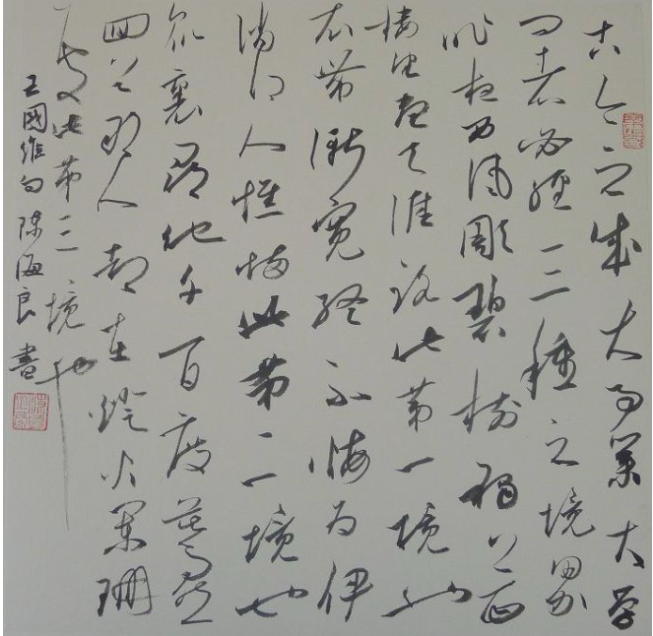 古今之成大事業大学
问者必經三種之境界
昨夜西風彫碧樹獨上高
樓望盡天涯路此第一境也
衣帶漸寬終不悔为伊
消得人憔悴此第二境也
眾裏尋他千百度驀然
回首那人却在燈火闌珊
處此第三境也
王國維句陳海良書